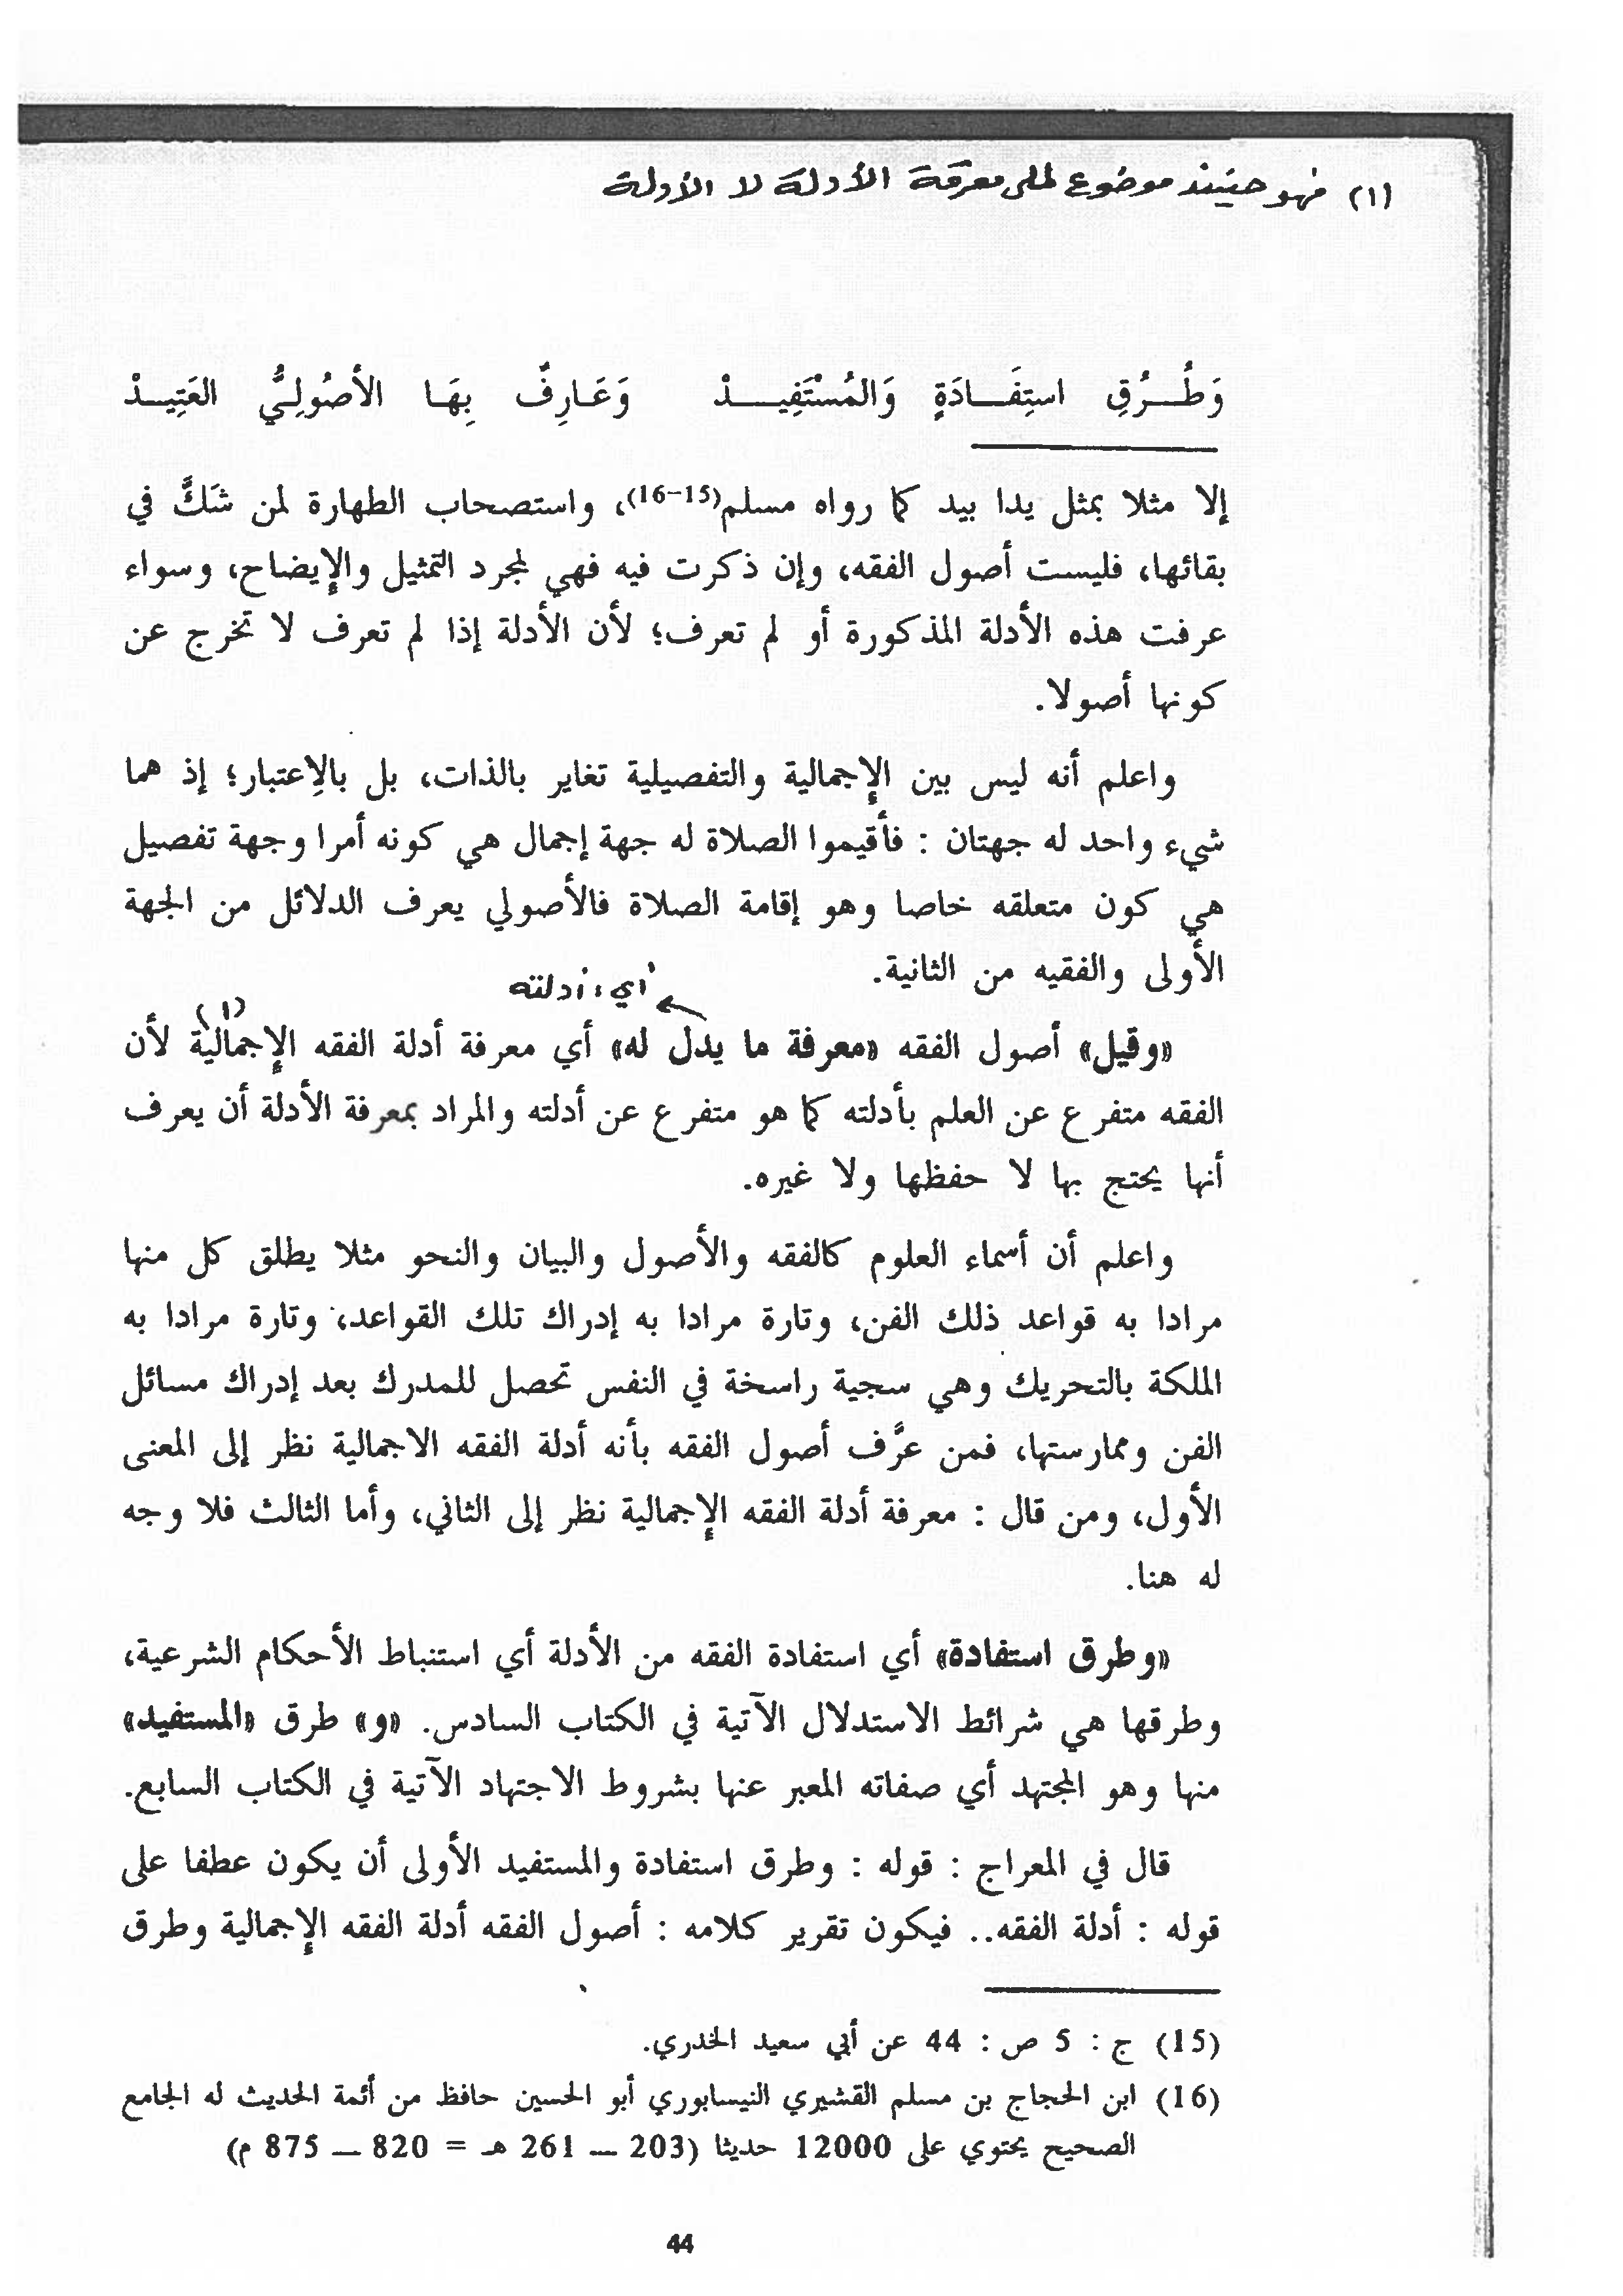 (١) فهو حينئذ موضوع لمعرفة الأدلة لا الأدلة
وَطُـــرُقِ استِفَـــادَةٍ وَالمُسْتَفِيـــــدْ وَعَـارِفٌ بِهَـا الأصُولِـيُّ العَتِيــدْ
إلا مثلا بمثل يدا بيد كما رواه مسلم(15-16)، واستصحاب الطهارة لمن شَكَّ في
بقائها، فليست أصول الفقه، وإن ذكرت فيه فهي لمجرد التمثيل والإيضاح، وسواء
عرفت هذه الأدلة المذكورة أو لم تعرف؛ لأن الأدلة إذا لم تعرف لا تخرج عن
كونها أصولا.
واعلم أنه ليس بين الإجمالية والتفصيلية تغاير بالذات، بل بالاِعتبار؛ إذ هما
شيء واحد له جهتان : فأقيموا الصلاة له جهة إجمال هي كونه أمرا وجهة تفصيل
هي كون متعلقه خاصا وهو إقامة الصلاة فالأصولي يعرف الدلائل من الجهة
الأولى والفقيه من الثانية.
أي: أدلته
(١)
«وقيل» أصول الفقه «معرفة ما يدل له» أي معرفة أدلة الفقه الإجمالية لأن
الفقه متفرع عن العلم بأدلته كما هو متفرع عن أدلته والمراد بمعرفة الأدلة أن يعرف
أنها يحتج بها لا حفظها ولا غيره.
واعلم أن أسماء العلوم كالفقه والأصول والبيان والنحو مثلا يطلق كل منها
مرادا به قواعد ذلك الفن، وتارة مرادا به إدراك تلك القواعد، وتارة مرادا به
الملكة بالتحريك وهي سجية راسخة في النفس تحصل للمدرك بعد إدراك مسائل
الفن وممارستها، فمن عرَّف أصول الفقه بأنه أدلة الفقه الاجمالية نظر إلى المعنى
الأول، ومن قال : معرفة أدلة الفقه الإجمالية نظر إلى الثاني، وأما الثالث فلا وجه
له هنا.
«وطرق استفادة» أي استفادة الفقه من الأدلة أي استنباط الأحكام الشرعية،
وطرقها هي شرائط الاستدلال الآتية في الكتاب السادس. «و» طرق «المستفيد»
منها وهو المجتهد أي صفاته المعبر عنها بشروط الاجتهاد الآتية في الكتاب السابع.
قال في المعراج : قوله : وطرق استفادة والمستفيد الأولى أن يكون عطفا على
قوله : أدلة الفقه.. فيكون تقرير كلامه : أصول الفقه أدلة الفقه الإجمالية وطرق
(15) ج : 5 ص : 44 عن أبي سعيد الخدري.
(16) ابن الحجاج بن مسلم القشيري النيسابوري أبو الحسين حافظ من أئمة الحديث له الجامع
الصحيح يحتوي على 12000 حديثا (203 — 261 هـ = 820 — 875 م)
44